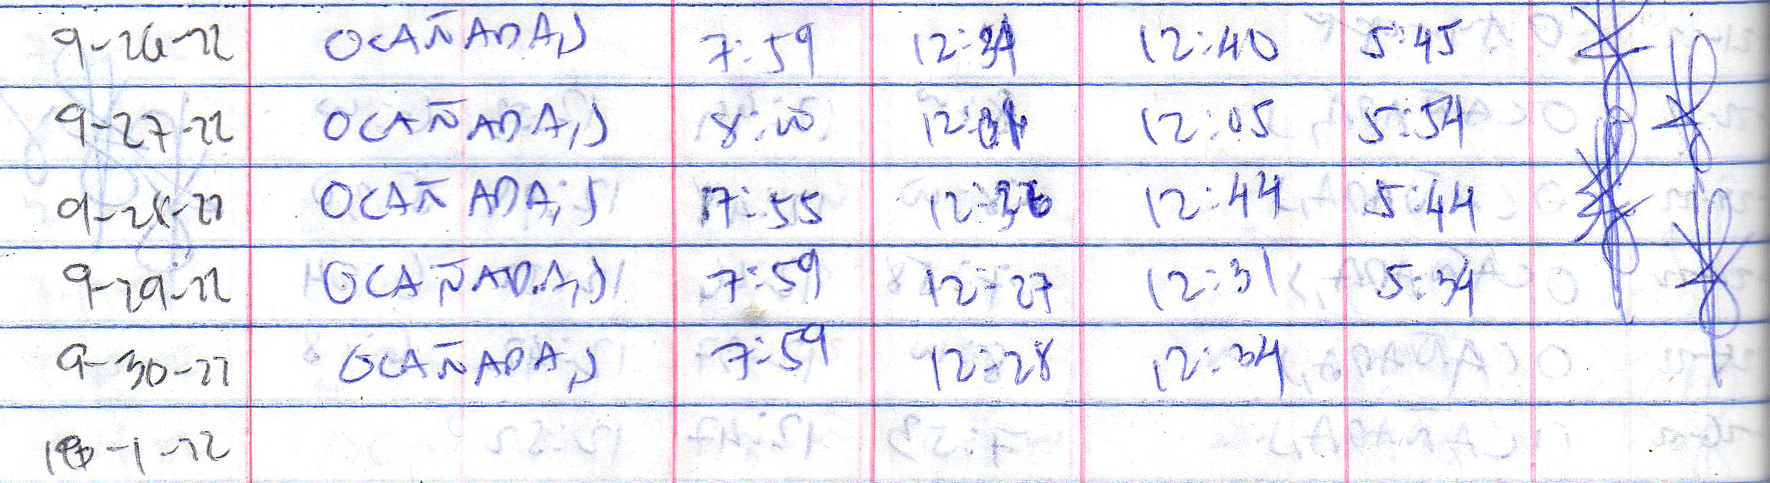 9-26-22 OCAÑADA,J 7:59 12:34 12:40 5:45
9-27-22 OCAÑADA,J 8:00 12:05 5:54
9-28-22 OCAÑADA,J 7:55 12:36 12:44 5:44
9-29-22 OCAÑADA,J 7:59 12:27 12:31 5:34
9-30-22 OCAÑADA,J 7:59 12:28 12:34
10-1-22